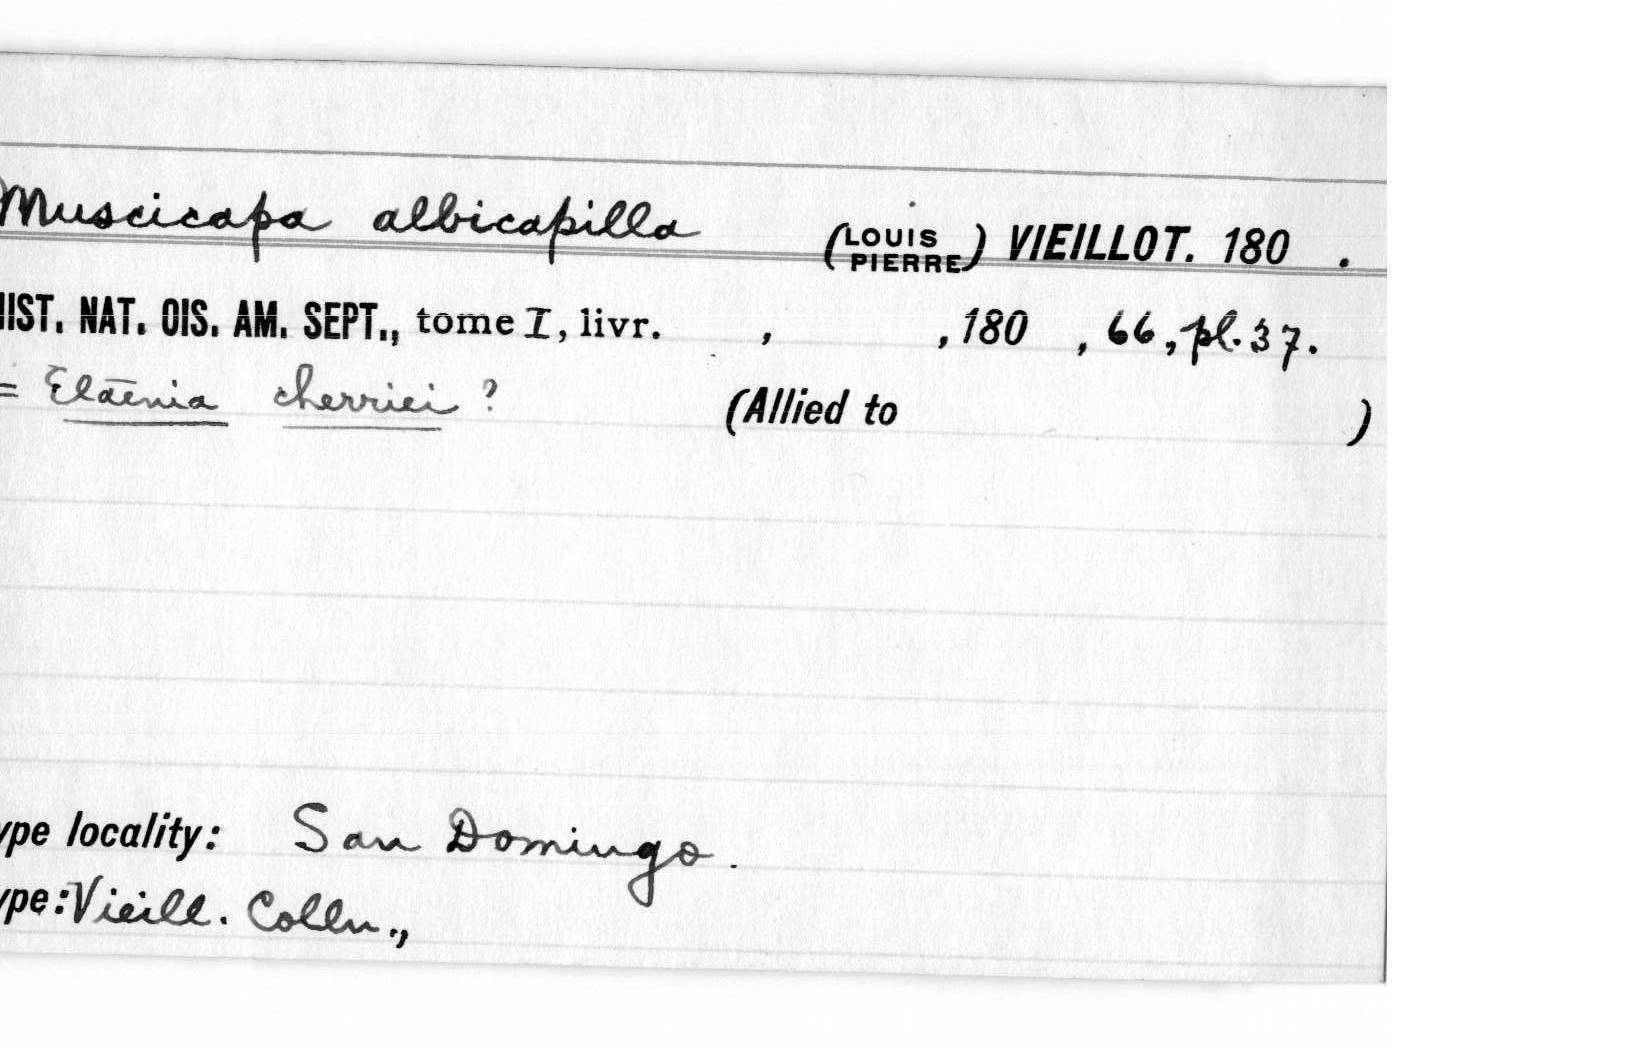 Muscicapa albicapilla (LOUIS PIERRE) VIEILLOT. 180 .
HIST. NAT. OIS. AM. SEPT., tome I, livr. , , 180 , 66, pl. 37.
= Elaenia cherriei ? (Allied to )
ype locality: San Domingo.
ype: Vieill. Colln.,